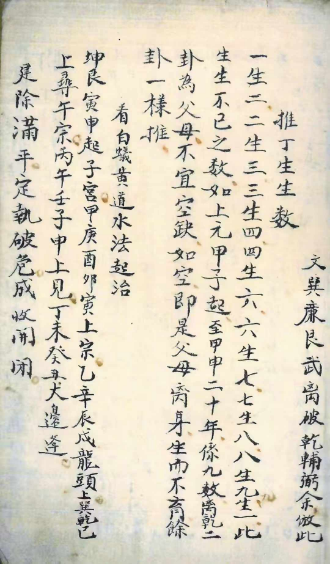 文巽廉艮武离破乾輔弼余倣此
推丁生生数
一生二二生三三生四四生六六生七七生八八生九生一此
生生不已之数如上元甲子起至甲申二十年係九数离乾二
卦為父母不宜空缺如空即是父母离身生而不育餘
卦一様推
看白蟻黄道水法起治
坤艮寅申起子宮甲庚酉卯寅上宗乙辛辰戌龍頭上巽乾巳
上尋午宗丙午壬子申上見丁未癸丑犬邊逢
建除滿平定執破危成收開閉